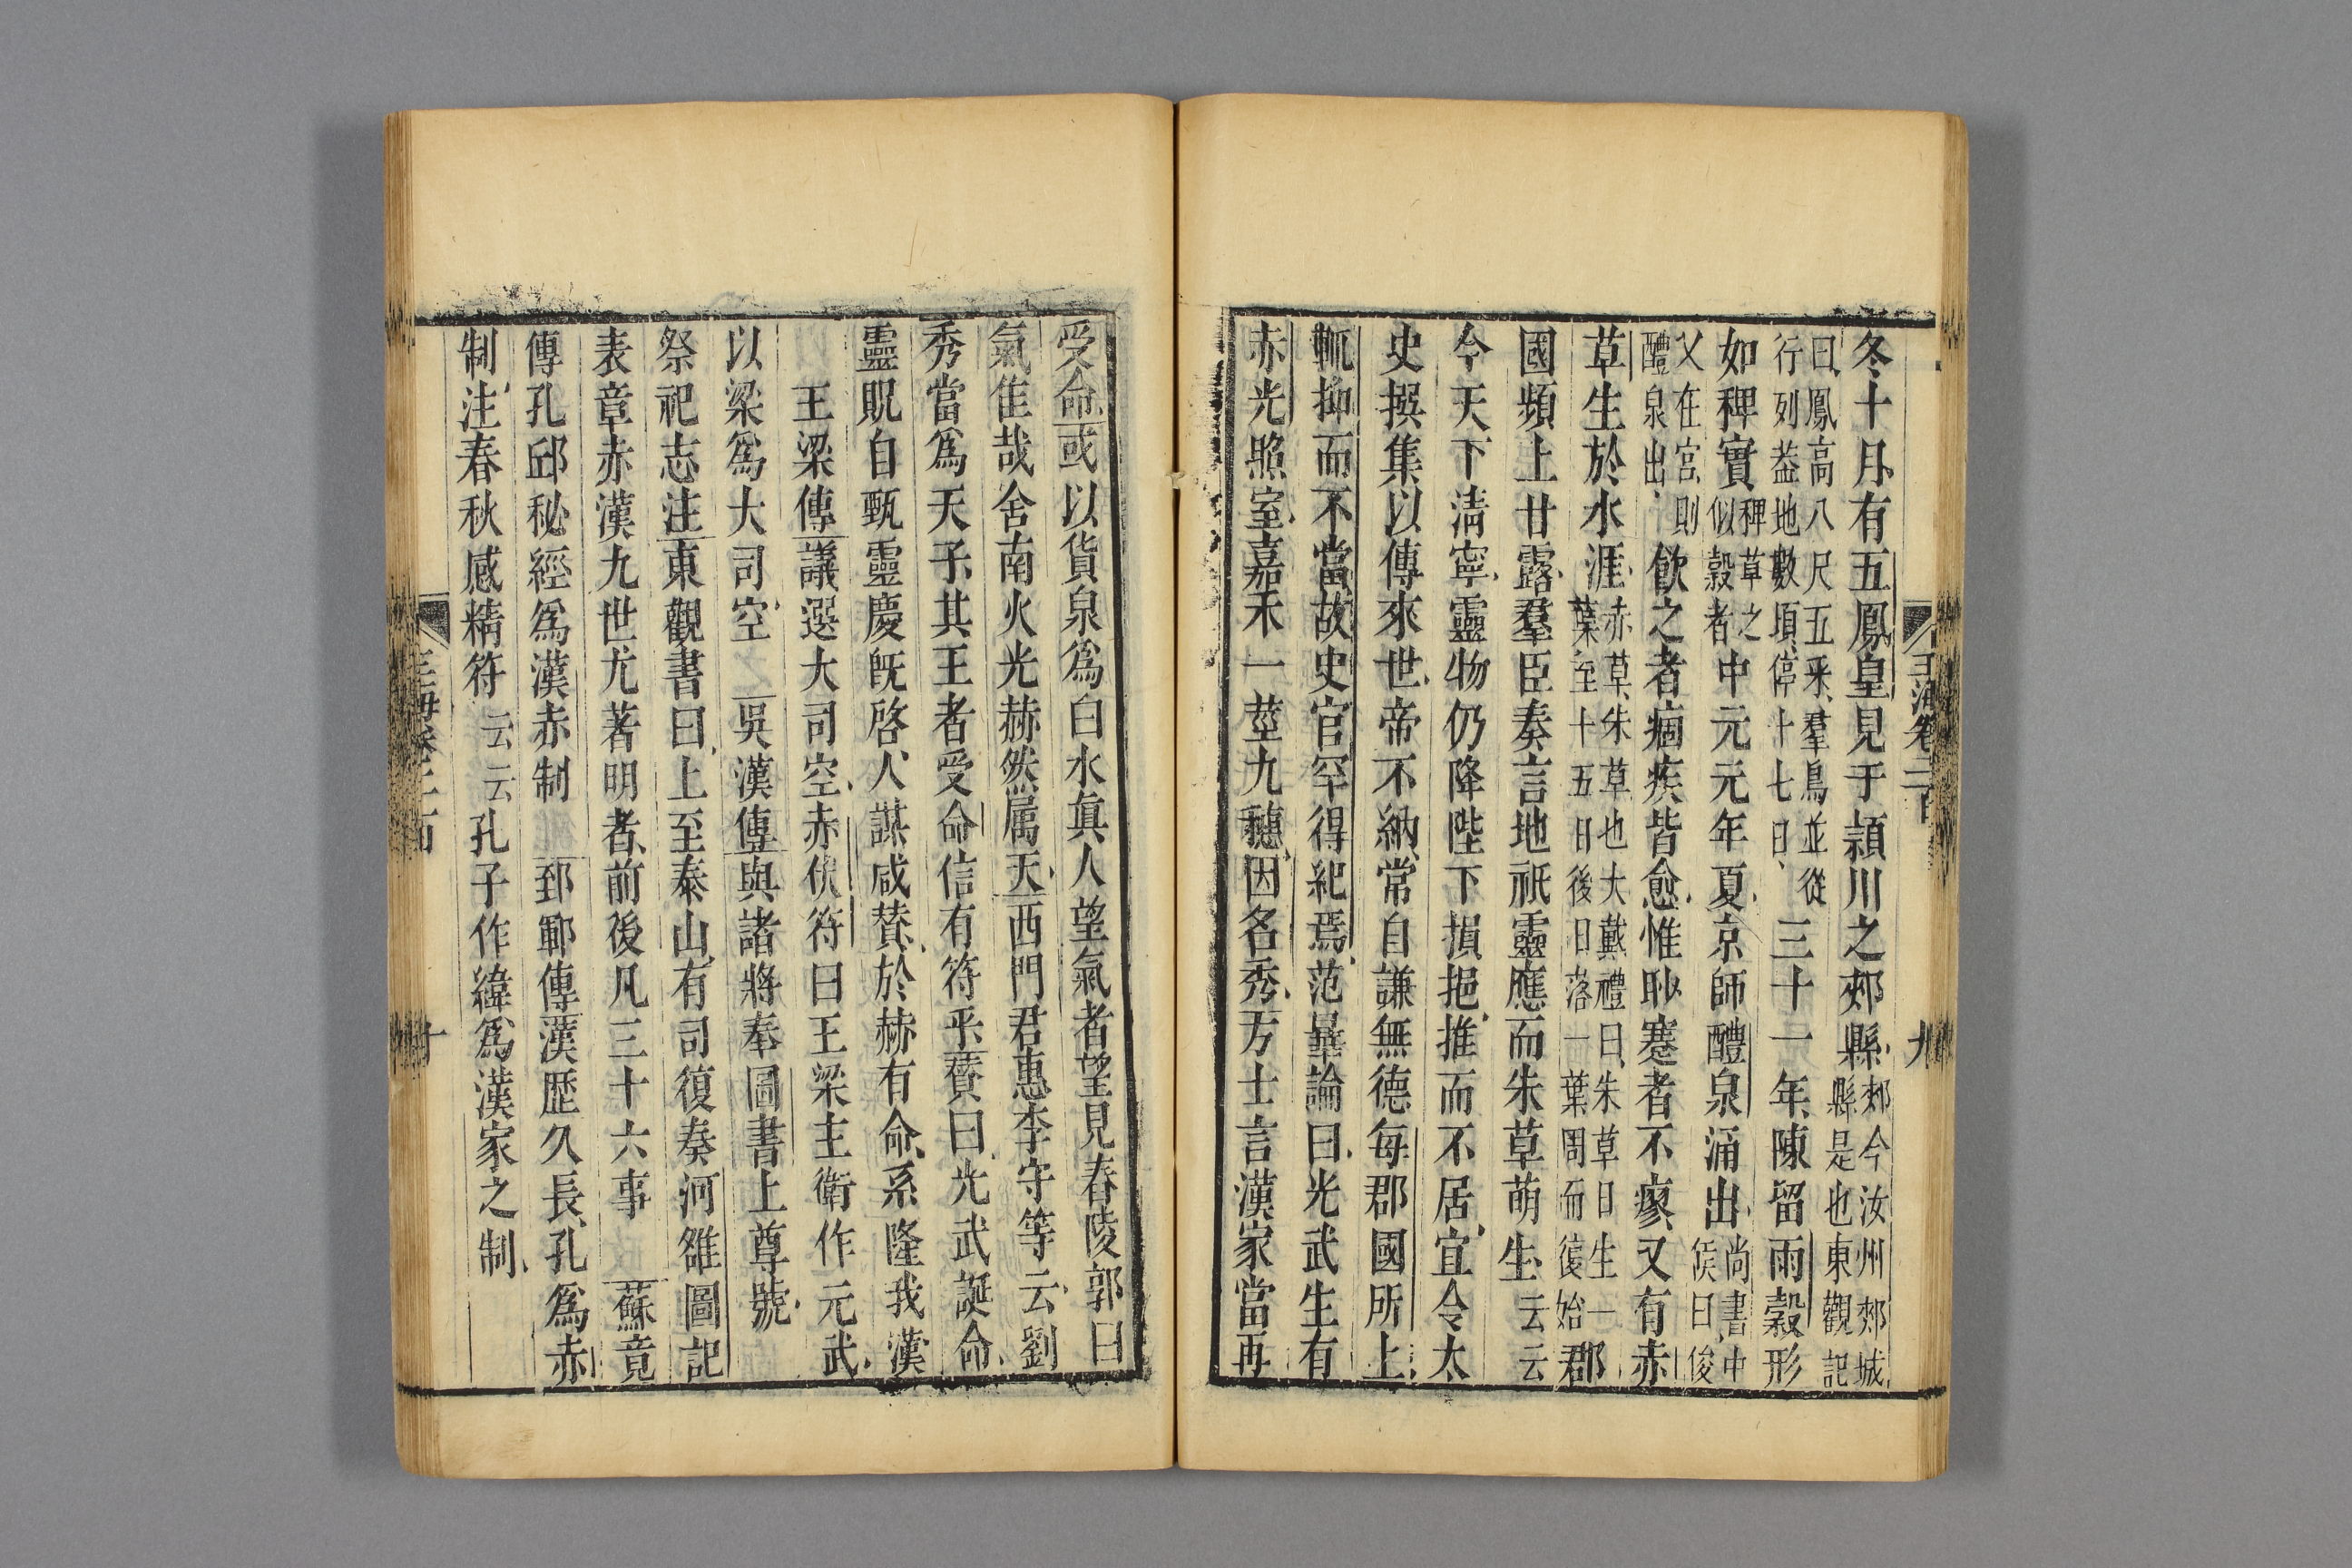 冬十月有五鳳皇見于潁川之郟縣郟今汝州郟城縣是也東觀記
曰鳳高八尺五采羣鳥並從行列葢地數頃停十七日三十一年陳留雨穀形
如稗實稗草之似穀者中元元年夏京師醴泉涌出尚書中候曰俊
乂在宮則醴泉出飲之者痼疾皆愈惟眇蹇者不瘳又有赤
草生於水涯赤草朱草也大戴禮曰朱草日生一葉至十五日後日落一葉周而復始郡
國頻上甘露羣臣奏言地祇靈應而朱草萌生云云
今天下清寧靈物仍降陛下損挹推而不居宜令太
史撰集以傳來世帝不納常自謙無德每郡國所上
輒抑而不當故史官罕得紀焉范曅論曰光武生有
赤光照室嘉禾一莖九穗因名秀方士言漢家當再
玉海卷二百 九
受命或以貨泉為白水真人望氣者望見舂陵郭曰
氣佳哉舍南火光赫然属天西門君惠李守等云劉
秀當為天子其王者受命信有符乎賛曰光武誕命
靈貺自甄靈慶既啓人謀咸賛於赫有命系隆我漢
王梁傳議選大司空赤伏符曰王梁主衛作元武
以梁為大司空吳漢傳與諸將奉圖書上尊號
祭祀志注東觀書曰上至泰山有司復奏河雒圖記
表章赤漢九世尤著明者前後凡三十六事蘇竟
傳孔邱秘經為漢赤制郅鄆傳漢歷久長孔為赤
制注春秋感精符云云孔子作緯為漢家之制
十